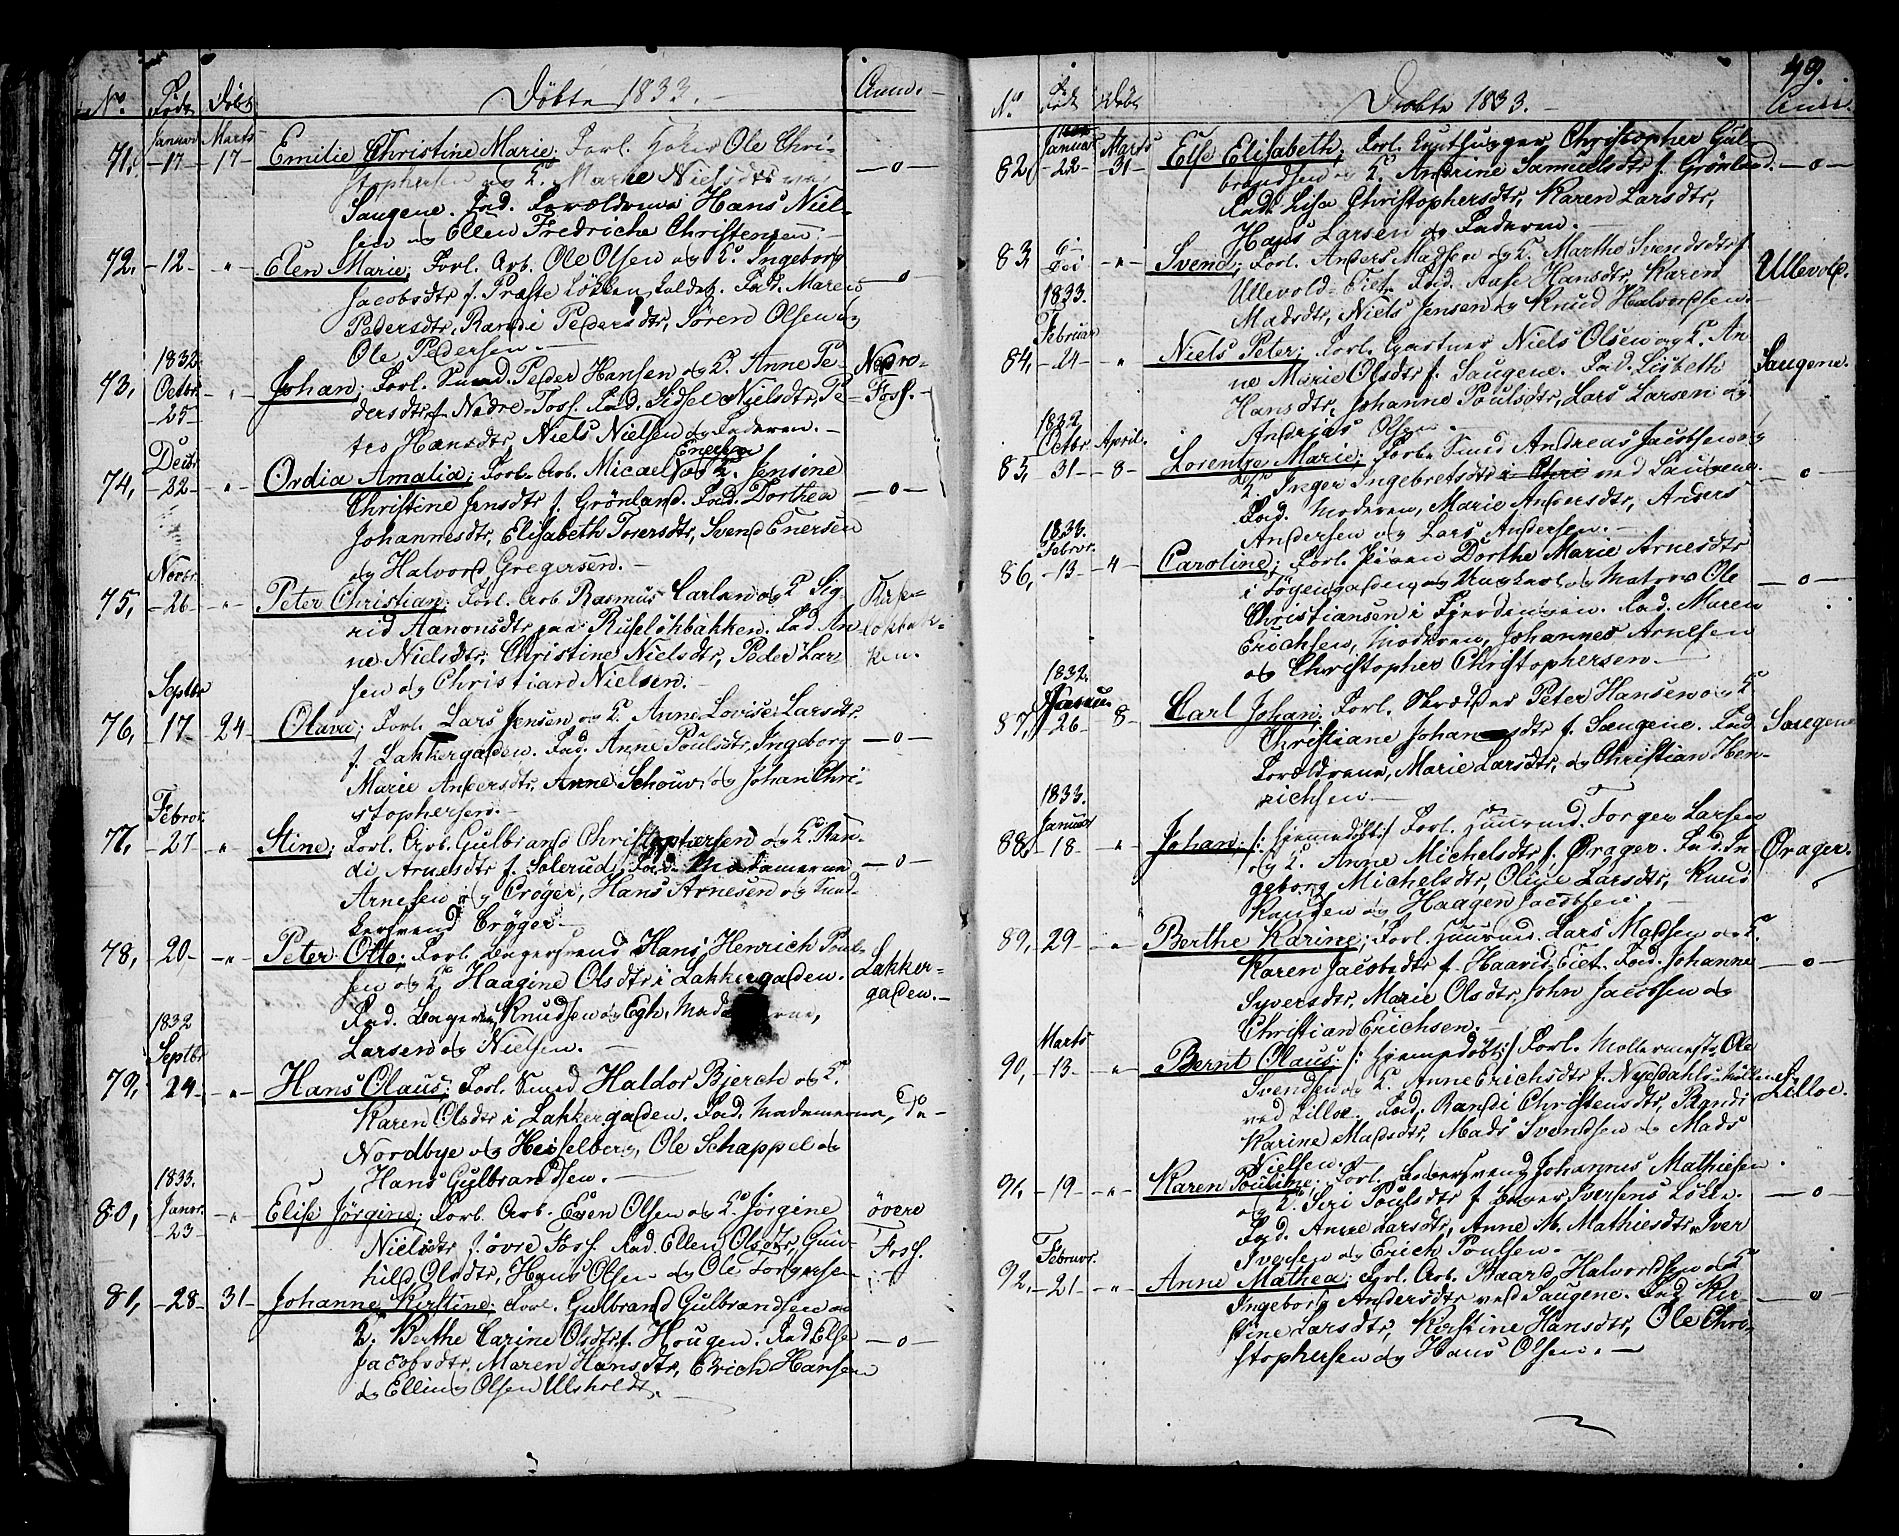 No. Født Døbt Døbte 1833. Anm.
Januar Marts
71. -17- 17- Emilie Christine Marie; Forl. Ole Chri-
stophersen og K. Marie Nielsdtr ved
Saugene. Fad. Forældrene Hans Niel-
sen og Ellen Fredriche Christensen.
72. -12- " Elen Marie; Forl. Arb. Ole Olsen og K. Ingeborg
Jacobsdtr f. Præste Løkken kaldet. Fad. Maren
Pedersdtr, Randi Pedersdtr, Søren Olsen og
Ole Pedersen.
1832.
73, Octbr. 25 " Johan; Forl. Smed Peder Hansen og K. Anne Pe- Nedre-
dersdtr f. Nedre-Foss. Fad. Sidsel Nielsdtr, Pe- Foss.
tro Hansdtr, Niels Nielsen og Faderen.
Decbr Enersen
74, -22- " Ordia Amalia; Forl. Arb. Micael og K. Jensine
Christine Jensdtr f. Grønland. Fad. Dorthea -o-
Johannesdtr, Elisabeth Toresdtr, Svend Enersen
og Halvord Gregersen.
Novbr.
75, -26- " Peter Christian; Forl. Arb. Rasmus Carlan og K. Sig- Ruse-
rid Aanonsdtr paa Ruseløkbakken. Fad. An- løkbak-
ne Nielsdtr, Christine Nielsdtr, Peder Lar- ken.
sen og Christian Nielsen.
Septbr
76, -17- 24- Olava; Forl. Lars Jensen og K. Anne Lovise Larsdtr.
f. Lakkergaden. Fad. Anne Poulsdtr, Ingeborg -o-
Marie Andersdtr, Anne Schouw og Johan Chri-
stophersen.
Februr.
77, -27- " Stine; Forl. Arb. Gulbrand Christophersen og K. Ran-
di Arnesdtr f. Sølerud; Fad. Madamerne -o-
Arnesen og Crøger, Hans Arnesen og
Crøger.
78, -20- " Peter Otto; Forl. Bagersvend Hans Henrich Poul-
sen og K. Haagine Olsdtr i Lakkergaden. Lakker-
Fad. Knudsen og Egh, Madamerne, gaden.
Larsen og Nielsen.
1832
Septbr
79, -24- " Hans Olaus; Forl. Smed Haldor Bjerch og K.
Karen Olsdtr i Lakkergaden. Fad. Madamerne,
Nordbye og Heiselberg, Ole Schappel og
Hans Gulbrandsen.
1833.
80, Januar. -23- " Elise Jørgine; Forl. Arb. Even Olsen og K. Jørgine øvere
Nielsdtr f. øvre Foss. Fad. Ellen Olsdtr, Gun- Foss.
hild Olsdtr, Hans Olsen og Ole Torgersen
81, -28- 31- Johanne Kirstine; Forl. Gulbrand Gulbrandsen og
K. Berthe Carine Olsdtr f. Hougen. Fad. Else -o-
Jacobsdtr, Maren Hansdtr, Erich Hansen
og Elling Olsen Ulsholdt.
49.
No. Født Døbt Døbte 1833. Anm.
Januar Marts
82, -22- 31- Else Elisabeth; Forl. Christopher Gul-
brandsen og K. Andrine Samuelsdtr f. Grønland. -o-
Fad. Lisa Christophersdtr, Karen Larsdtr,
Hans Larsen og Faderen.
83, " Svend; Forl. Anders Madsen og K. Marthe Svendsdtr f. Ullevold.
Ullevold-Eiet. Fad. Aase Hansdtr, Karen
Madsdtr, Niels Jensen og Knud Halvordsen.
1833.
Februar
84, -24- " Niels Peter; Forl. Gartner Niels Olsen og K. An-
ne Marie Olsdtr f. Saugene. Fad. Lisbeth Saugene.
Hansdtr, Johanne Poulsdtr, Lars Larsen og
Andreas Olsen.
1832
Octbr April.
85, 31- 8- Lorentze Marie; Forl. Smed Andreas Jacobsen og
K. Inger Ingebretsdtr i Chri ved Saugene. -o-
Fad. Moderen, Marie Andersdtr, Anders
Andersen og Lars Andersen.
1833.
Februr.
86, -13- -4- Caroline; Forl. Pigen Dorthe Marie Arnesdtr
i Søgengaden og Ungkarl og Matros Ole -o-
Christiansen i Fjerdingen. Fad. Maren
Erichsen, Moderen, Johannes Arnesen
og Christopher Christophersen.
1832.
87, 26- 8- Carl Johan; Forl. Skrædder Peter Hansen og K.
Christiane Johannsdtr f. Saugene. Fad. Saugene
Forældrene, Marie Larsdtr, og Christian Hen-
richsen.
1833.
Januar
88, -18- " Johan; /: Hjemmedøbt :/ Forl. Huusmd. Torger Larsen
og K. Anne Michelsdtr f. Ørager. Fad. In- Ørager.
geborg Michelsdtr, Oline Larsdtr, Knud
Knudsen og Haagen Jacobsen.
89, 29- " Berthe Karine; Forl. Huusmd. Lars Madsen og K.
Karen Jacobsdtr f. Haavid-Eiet. Fad. Johanne -o-
Syversdtr, Marie Olsdtr, John Jacobsen og
Christian Erichsen.
Marts
90, -13- " Bernt Olaus; /: Hjemmedøbt :/ Forl. Møllermest. Ole
Svendsen og K. Anne Erichsdtr f. Nydahls-Møllene
ved Lilloe. Fad. Randi Christensdtr, Randi Lilloe.
Karine Madsdtr, Mads Svendsen og Mads
Nielsen.
91, -19- " Karen Pouline; Forl. Johannes Mathiesen
og K. Siri Poulsdtr f. Bager Iversens Løkke. -o-
Fad. Anne Larsdtr, Anne M. Mathiesdtr, Iver
Iversen og Erich Poulsen.
Februar.
92, -21- " Anne Mathea; Forl. Arb. Baard Halvordsen og K.
Ingeborg Andersdtr ved Saugene. Fad. Kir- -o-
stine Larsdtr, Kirstine Hansdtr, Ole Chri-
stophersen og Hans Olsen.